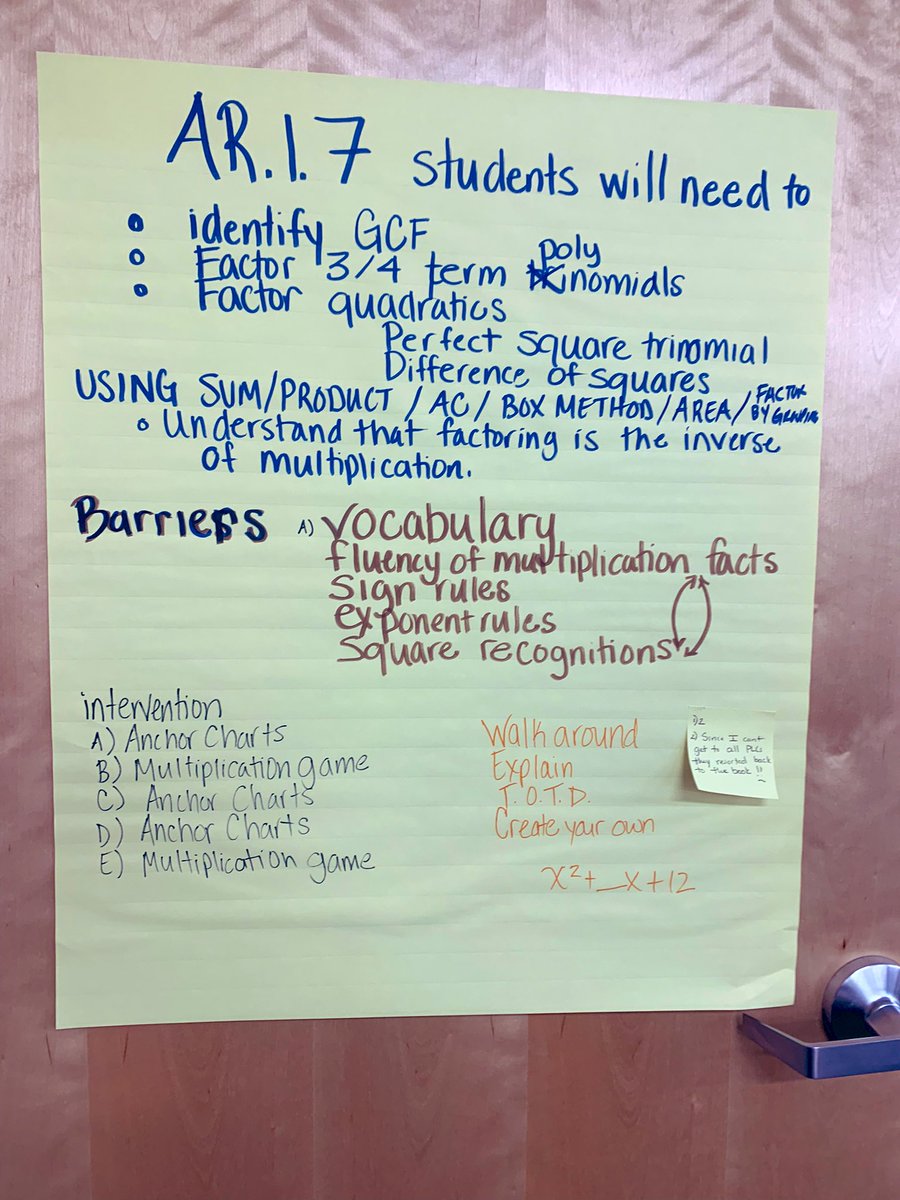 AR.1.7 students will need to
• identify GCF
• Factor 3/4 term polynomials
• Factor quadratics
Perfect square trinomial
Difference of squares
USING SUM/PRODUCT / AC / BOX METHOD / AREA / FACTOR BY GROUPING
• Understand that factoring is the inverse
of multiplication.
Barriers A) Vocabulary
fluency of multiplication facts
Sign rules
exponent rules
Square recognitions
intervention
A) Anchor Charts
B) Multiplication game
C) Anchor Charts
D) Anchor Charts
E) Multiplication game
Walk around
Explain
T.O.T.D.
Create your own
x²+__x+12
2) Since I can't
get to all PLCs
they resorted back
to the book !!